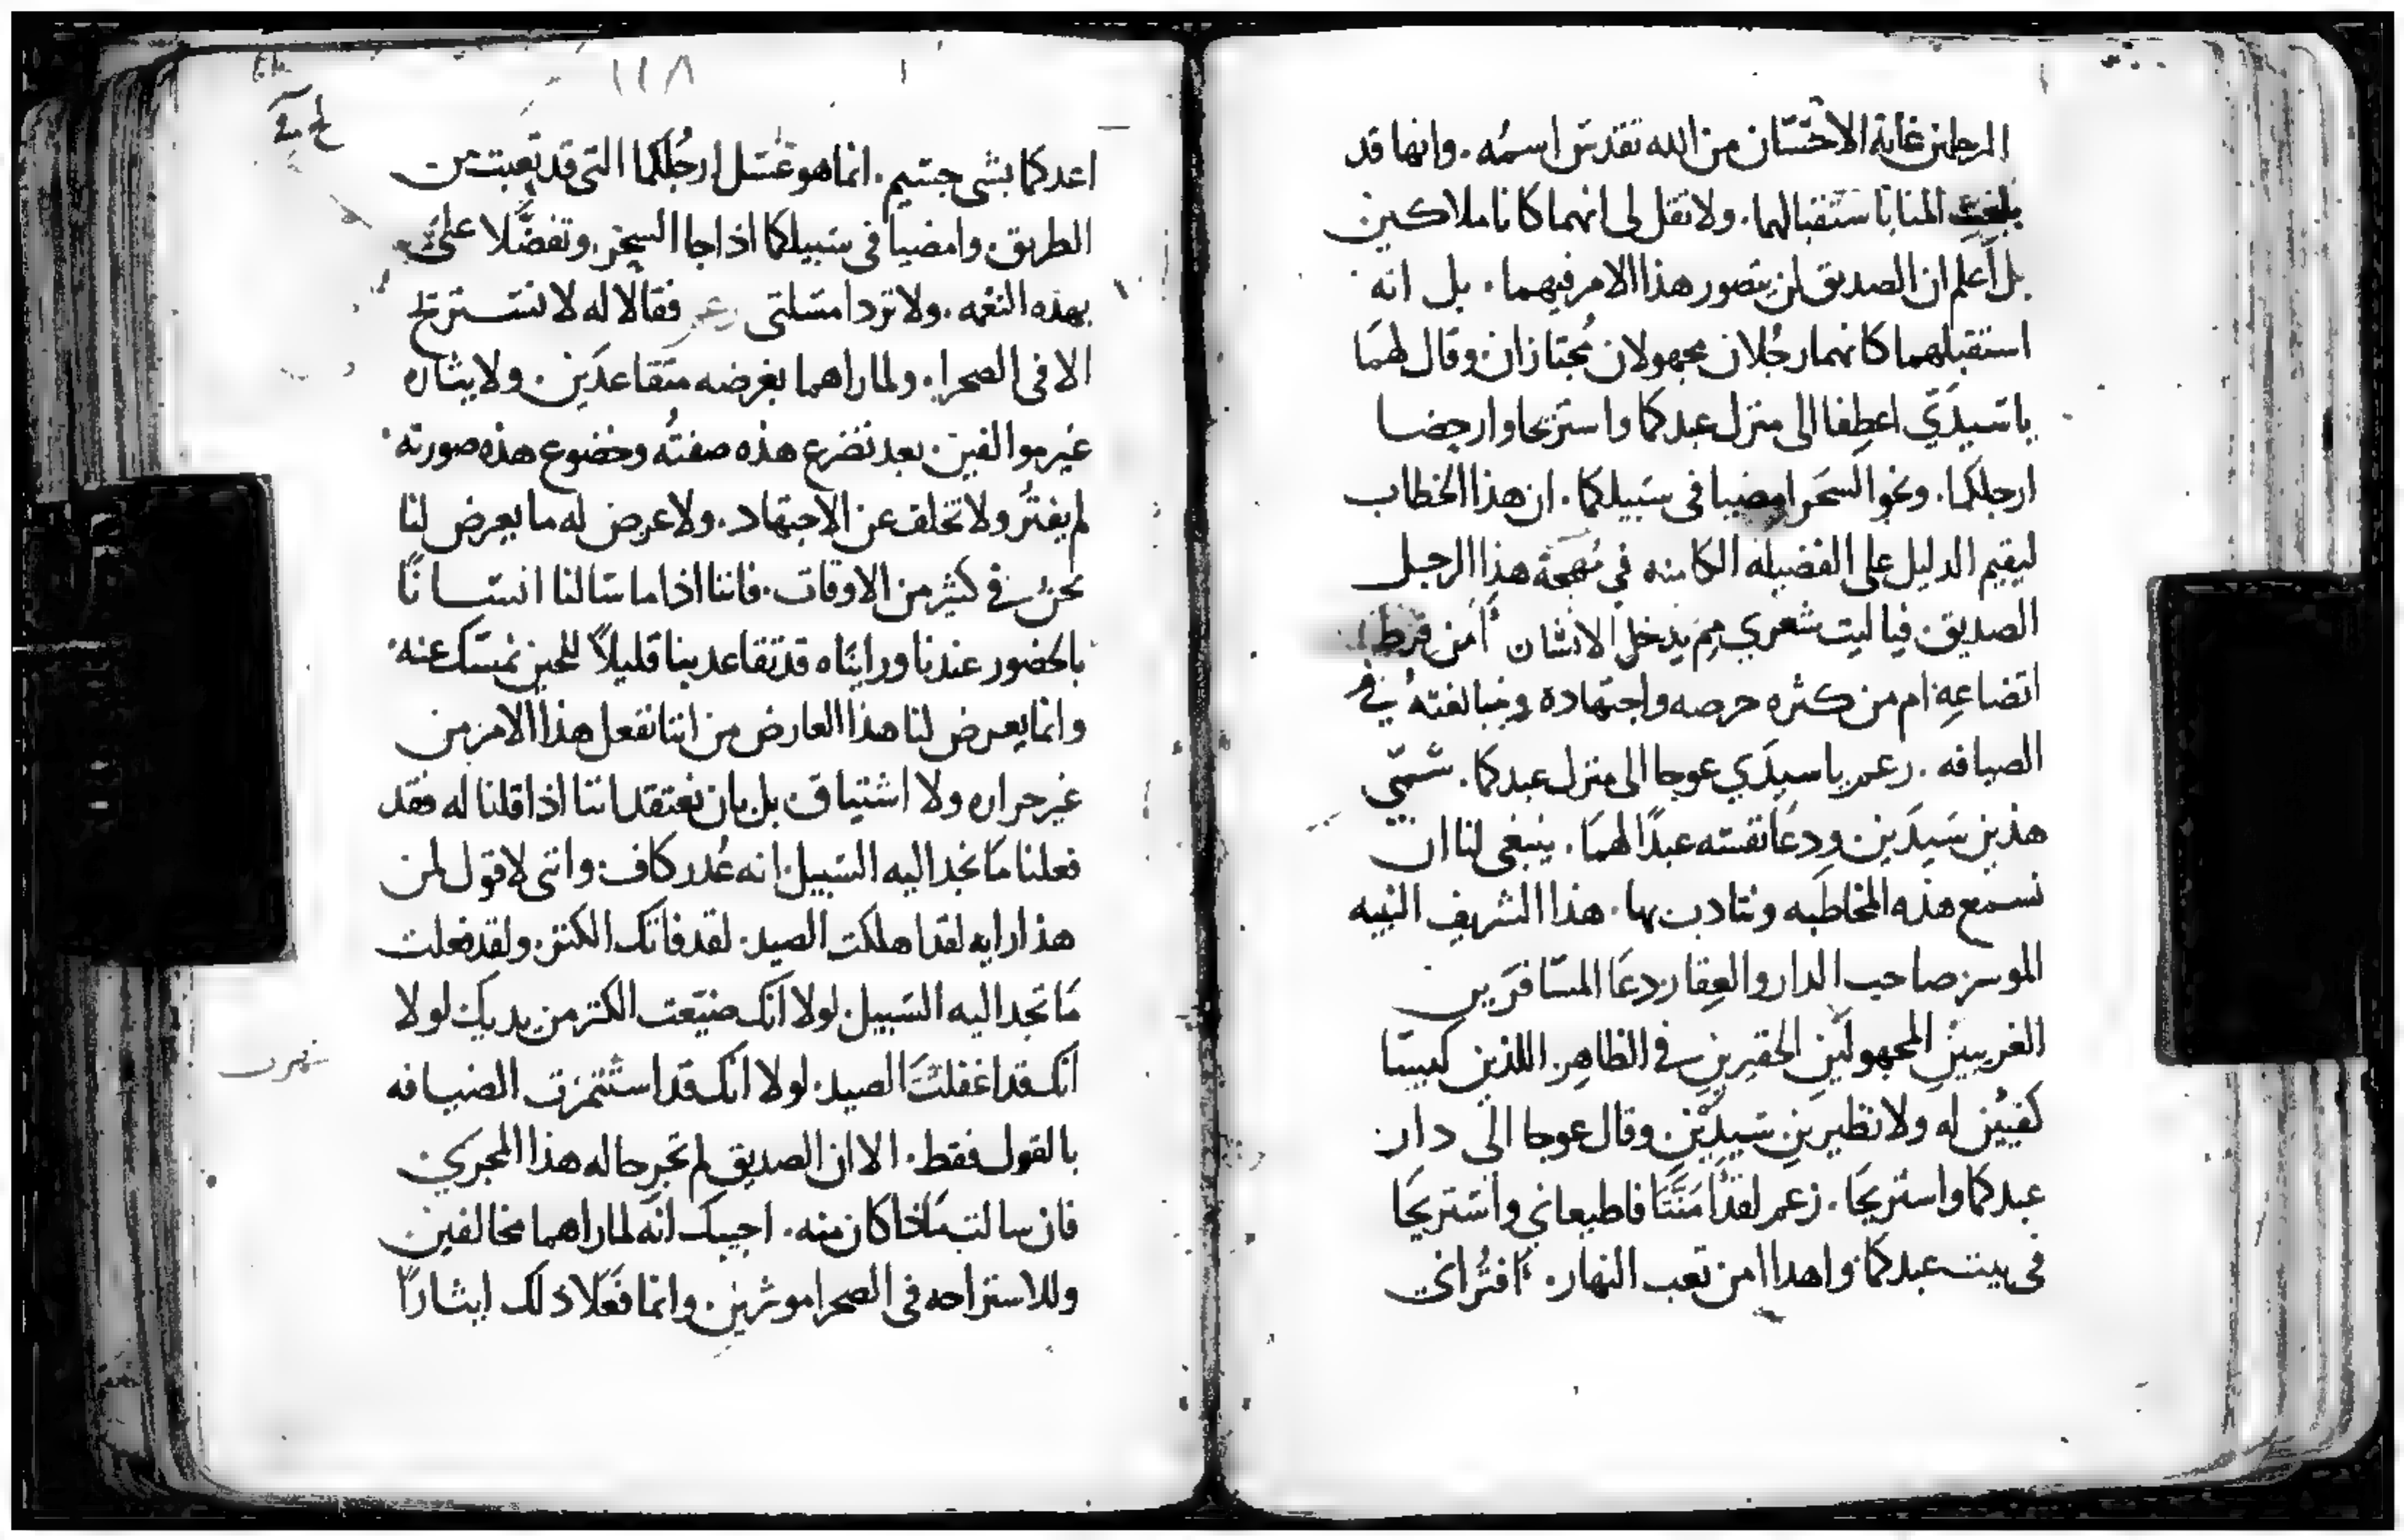 الرجلين غاية الاحسان من الله تقدس اسمه. وانها قد
بلغت المنا باستقبالهما. ولا تقل لى انهما كانا ملاكين
بل أعلم ان الصديق لن يتصور هذا الامر فيهما. بل انه
استقبلهما كانهما رجُلان مجهولان مُجتازان وقال لهمَا
ياسَيديَّ اعطِفا الى منزل عبدكما واستريحا وارحضا
ارجلكما. ونحو السحَر امضيا فى سَبيلكما. ان هذا الخطاب
ليقيم الدليل على الفضيله الكامنه في مُهجة هذا الرجل
الصديق. فيا ليت شعري مِم يذهل الانسَان أمن فرط
اتضاعِهِ ام من كثره حرصه واجتهاده ومبالغته في
الضيافه. زعم ياسيدَي عوجا الى منزل عبدكما. سَمّى
هذين سَيدَين ودعَا نفسَه عبدًا لهمَا. ينبغى لنا ان
نسمع هذه المخاطبه ونتادب بها. هذا الشريف النبيه
الموسر صاحب الدار والعِقار دعَا المسَافرَين
الغريبين المجهولَين الحقيرين في الظاهِر. اللذين ليسَا
كفيَين له ولا نظيرين سَيدَين وقال عوجا الى دار
عبدكما واستريحَا. زعم لقد امَنتَا فاطيعاني واسَتريحَا
فى بيت عبدكما واهداا من تعب النهار. افترُاني
١١٨
اعدكما بشى جسَيم. انما هو غسَل ارجُلكما التى قد تعبت من
الطريق. وامضيا فى سَبيلكما اذا جا السحر. وتفضَّلا علىَّ
بهذه النعمه. ولا تردا مسَلتى زعم فقالا له لا نسَتريح
الا فى الصحرا. ولما راهما بغرضه متقاعدَين. ولايثاره
غير موالفين. بعد تضرع هذه صفتُه وخضوع هذه صورته
لم يفتُر ولا تخلف عن الاجتهاد. ولا عرض له ما يعرض لنا
نحنُ في كثير من الاوقات. فاننا اذا ما سَالنا انسَانًا
بالحضور عندنا ورايناه قد تقاعد بنا قليلاً للحين نمسَك عنه
وانما يعرض لنا هذا العارض من اننا نفعل هذا الامر من
غير حراره ولا اشتياق بل بان نعتقد اننا اذا قلنا له فقد
فعلنا مَا نجد اليه السَبيل. انه عُذر كاف وانني لاقول لمن
هذا رايه لقد اهلكت الصيد. لقد فاتك الكنز. ولقد فعلت
مَا تجد اليه السَبيل. لولا انك ضيّعت الكنز من يديك لولا
انك قد اغفلت الصيد. لولا انك قد استثمرت الضيافه
بالقول فقط. الا ان الصديق لم تجر حاله هذا المجري
فان سالت مَاذا كان منه. اجيبك انه لما راهما مخالفين
وللاستراحه فى الصحرا موثرين. وانما فعَلا ذلك ايثارًا